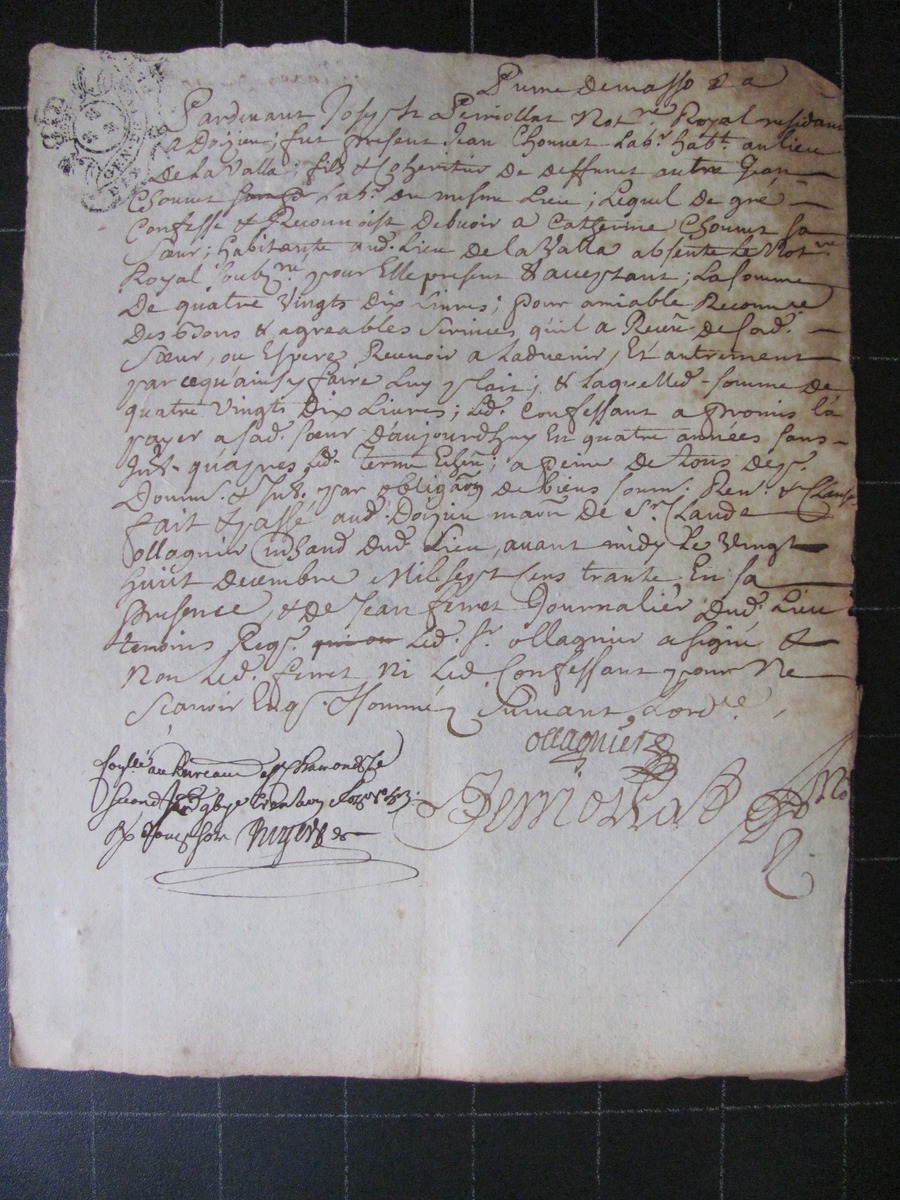 Pardevant Joseph Perriollat Not.re Royal residant
a Doizieu; fut present Jean Chonnet Lab.r hab.t au lieu
De La Valla, fils & Coheritier De deffunct autre Jean
Chonnet Lab.r du mesme Lieu; Lequel de gré
Confesse & Reconnoist Debvoir a Catterine Chonnet sa
Sœur; habitante aud. Lieu de la Valla absente Le Not.re
Royal soubz.né pour Elle present & acceptant; La somme
De quatre Vingts Dix Livres; pour amiable
Des bons & agreables Services qu'il a Receu de sad.
Sœur, ou Espere Recevoir a Ladvenir, Et autrement
par ce qu'ainsy faire Luy plait; & Laquelled. somme de
quatre Vingts Dix Livres; Led. Confessant a promis la
payer a sad. sœur D'aujourdhuy En quatre années sans
Int. qu'apres led. terme Echeu; a peine de tous desp.
Domm. & Int. par obliga.on de biens soum. Ren. & Clause
fait & passé aud. Doizieu maison de S.r Claude
ollagnier md dud. Lieu, avant midy Le Vingt
huit decembre Mil sept Cens trante, En sa
presence, & de Jean ferret Journalier dud. Lieu
temoins Req. Led. S.r ollagnier a signé &
Non Led. ferret ni Led. Confessant pour Ne
Scavoir Enq. & sommé Suivant Lord.ce
ollagnier
Perriollat
au Bureau de St Chamond le
second